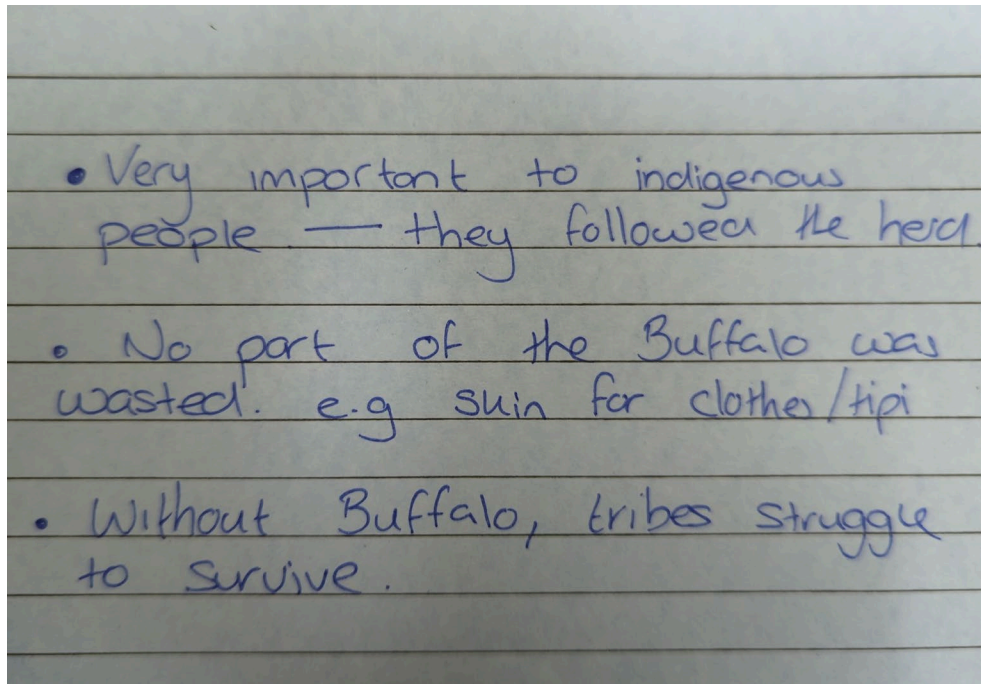 • Very important to indigenous
people — they followed the herd
• No part of the Buffalo was
wasted. e.g skin for clothes/tipi
• Without Buffalo, tribes struggle
to survive.